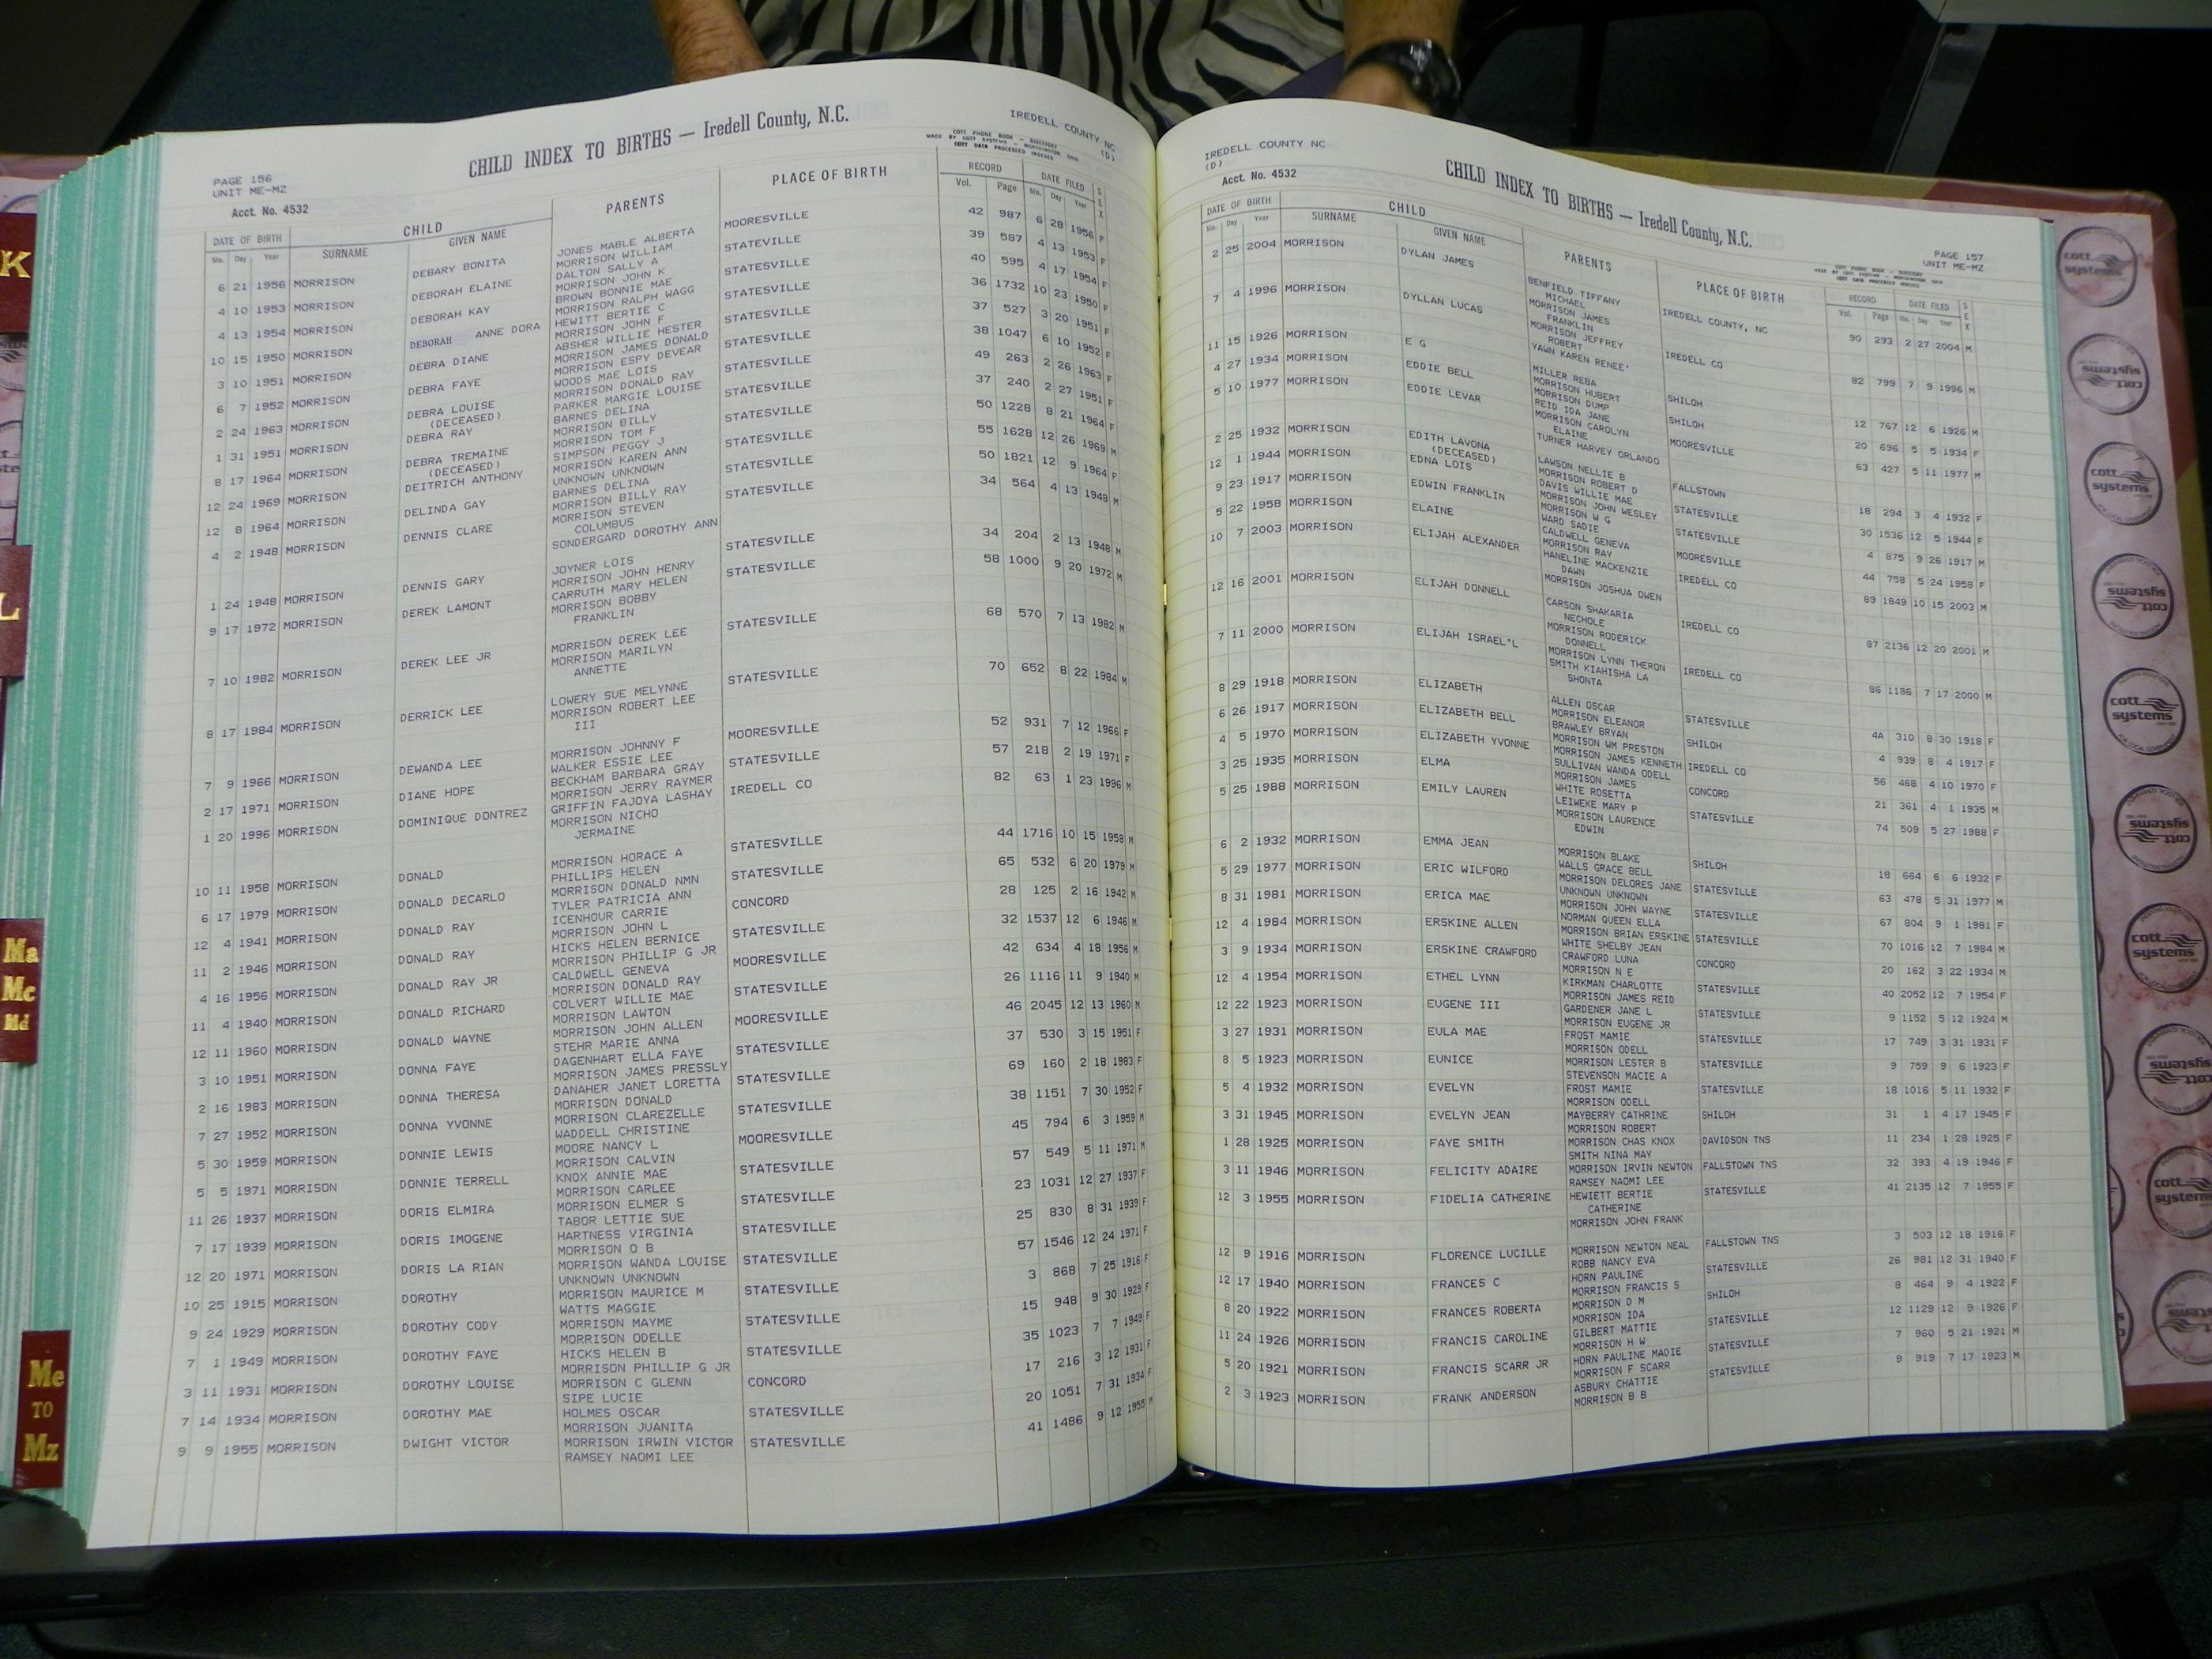 CHILD INDEX TO BIRTHS — Iredell County, N.C.
IREDELL COUNTY NC
(D)
COTT PHONE BOOK - DIRECTORY
MADE BY COTT SYSTEMS - WORTHINGTON OHIO
COTT DATA PROCESSED INDEXES
PAGE 156
UNIT ME-MZ
Acct. No. 4532
DATE OF BIRTH CHILD PARENTS PLACE OF BIRTH RECORD DATE FILED SEX
Mo. Day Year SURNAME GIVEN NAME Vol. Page Mo. Day Year
6 21 1956 MORRISON DEBARY BONITA JONES MABLE ALBERTA MOORESVILLE 42 987 6 28 1956 F
MORRISON WILLIAM
4 10 1953 MORRISON DEBORAH ELAINE DALTON SALLY A STATEVILLE 39 587 4 13 1953 F
MORRISON JOHN K
4 13 1954 MORRISON DEBORAH KAY BROWN BONNIE MAE STATESVILLE 40 595 4 17 1954 F
MORRISON RALPH WAGG
10 15 1950 MORRISON DEBORAH ANNE DORA HEWITT BERTIE C STATESVILLE 36 1732 10 23 1950 F
MORRISON JOHN F
3 10 1951 MORRISON DEBRA DIANE ABSHER WILLIE HESTER STATESVILLE 37 527 3 20 1951 F
MORRISON JAMES DONALD
6 7 1952 MORRISON DEBRA FAYE MORRISON ESPY DEVEAR STATESVILLE 38 1047 6 10 1952 F
WOODS MAE LOIS
2 24 1963 MORRISON DEBRA LOUISE MORRISON DONALD RAY STATESVILLE 49 263 2 26 1963 F
(DECEASED) PARKER MARGIE LOUISE
1 31 1951 MORRISON DEBRA RAY BARNES DELINA STATESVILLE 37 240 2 27 1951 F
MORRISON BILLY
8 17 1964 MORRISON DEBRA TREMAINE MORRISON TOM F STATESVILLE 50 1228 8 21 1964 F
(DECEASED) SIMPSON PEGGY J
12 24 1969 MORRISON DEITRICH ANTHONY MORRISON KAREN ANN STATESVILLE 55 1628 12 26 1969 M
UNKNOWN UNKNOWN
12 8 1964 MORRISON DELINDA GAY BARNES DELINA STATESVILLE 50 1821 12 9 1964 F
MORRISON BILLY RAY
4 2 1948 MORRISON DENNIS CLARE MORRISON STEVEN STATESVILLE 34 564 4 13 1948 M
COLUMBUS
SONDERGARD DOROTHY ANN
1 24 1948 MORRISON DENNIS GARY JOYNER LOIS STATESVILLE 34 204 2 13 1948 M
MORRISON JOHN HENRY
9 17 1972 MORRISON DEREK LAMONT CARRUTH MARY HELEN STATESVILLE 58 1000 9 20 1972 M
MORRISON BOBBY
FRANKLIN
7 10 1982 MORRISON DEREK LEE JR MORRISON DEREK LEE STATESVILLE 68 570 7 13 1982 M
MORRISON MARILYN
ANNETTE
8 17 1984 MORRISON DERRICK LEE LOWERY SUE MELYNNE STATESVILLE 70 652 8 22 1984 M
MORRISON ROBERT LEE
III
7 9 1966 MORRISON DEWANDA LEE MORRISON JOHNNY F MOORESVILLE 52 931 7 12 1966 F
WALKER ESSIE LEE
2 17 1971 MORRISON DIANE HOPE BECKHAM BARBARA GRAY STATESVILLE 57 218 2 19 1971 F
MORRISON JERRY RAYMER
1 20 1996 MORRISON DOMINIQUE DONTREZ GRIFFIN FAJOYA LASHAY IREDELL CO 82 63 1 23 1996 M
MORRISON NICHO
JERMAINE
10 11 1958 MORRISON DONALD MORRISON HORACE A STATESVILLE 44 1716 10 15 1958 M
PHILLIPS HELEN
6 17 1979 MORRISON DONALD DECARLO MORRISON DONALD NMN STATESVILLE 65 532 6 20 1979 M
TYLER PATRICIA ANN
12 4 1941 MORRISON DONALD RAY ICENHOUR CARRIE CONCORD 28 125 2 16 1942 M
MORRISON JOHN L
11 2 1946 MORRISON DONALD RAY HICKS HELEN BERNICE STATESVILLE 32 1537 12 6 1946 M
MORRISON PHILLIP G JR
4 16 1956 MORRISON DONALD RAY JR CALDWELL GENEVA MOORESVILLE 42 634 4 18 1956 M
MORRISON DONALD RAY
11 4 1940 MORRISON DONALD RICHARD COLVERT WILLIE MAE STATESVILLE 26 1116 11 9 1940 M
MORRISON LAWTON
12 11 1960 MORRISON DONALD WAYNE MORRISON JOHN ALLEN MOORESVILLE 46 2045 12 13 1960 M
STEHR MARIE ANNA
3 10 1951 MORRISON DONNA FAYE DAGENHART ELLA FAYE STATESVILLE 37 530 3 15 1951 F
MORRISON JAMES PRESSLY
2 16 1983 MORRISON DONNA THERESA DANAHER JANET LORETTA STATESVILLE 69 160 2 18 1983 F
MORRISON DONALD
7 27 1952 MORRISON DONNA YVONNE MORRISON CLAREZELLE STATESVILLE 38 1151 7 30 1952 F
WADDELL CHRISTINE
5 30 1959 MORRISON DONNIE LEWIS MOORE NANCY L MOORESVILLE 45 794 6 3 1959 M
MORRISON CALVIN
5 5 1971 MORRISON DONNIE TERRELL KNOX ANNIE MAE STATESVILLE 57 549 5 11 1971 M
MORRISON CARLEE
11 26 1937 MORRISON DORIS ELMIRA MORRISON ELMER S STATESVILLE 23 1031 12 27 1937 F
TABOR LETTIE SUE
7 17 1939 MORRISON DORIS IMOGENE HARTNESS VIRGINIA STATESVILLE 25 830 8 31 1939 F
MORRISON O B
12 20 1971 MORRISON DORIS LA RIAN MORRISON WANDA LOUISE STATESVILLE 57 1546 12 24 1971 F
UNKNOWN UNKNOWN
10 25 1915 MORRISON DOROTHY MORRISON MAURICE M STATESVILLE 3 868 7 25 1916 F
WATTS MAGGIE
9 24 1929 MORRISON DOROTHY CODY MORRISON MAYME STATESVILLE 15 948 9 30 1929 F
MORRISON ODELLE
7 1 1949 MORRISON DOROTHY FAYE HICKS HELEN B STATESVILLE 35 1023 7 7 1949 F
MORRISON PHILLIP G JR
3 11 1931 MORRISON DOROTHY LOUISE MORRISON C GLENN CONCORD 17 216 3 12 1931 F
SIPE LUCIE
7 14 1934 MORRISON DOROTHY MAE HOLMES OSCAR STATESVILLE 20 1051 7 31 1934 F
MORRISON JUANITA
9 9 1955 MORRISON DWIGHT VICTOR MORRISON IRWIN VICTOR STATESVILLE 41 1486 9 12 1955 M
RAMSEY NAOMI LEE
IREDELL COUNTY NC
(D)
Acct. No. 4532
CHILD INDEX TO BIRTHS — Iredell County, N.C.
PAGE 157
UNIT ME-MZ
COTT PHONE BOOK - DIRECTORY
MADE BY COTT SYSTEMS - WORTHINGTON OHIO
COTT DATA PROCESSED INDEXES
DATE OF BIRTH CHILD PARENTS PLACE OF BIRTH RECORD DATE FILED SEX
Mo. Day Year SURNAME GIVEN NAME Vol. Page Mo. Day Year
2 25 2004 MORRISON DYLAN JAMES BENFIELD TIFFANY IREDELL COUNTY, NC 90 293 2 27 2004 M
MICHAEL
MORRISON JAMES
FRANKLIN
7 4 1996 MORRISON DYLLAN LUCAS MORRISON JEFFREY IREDELL CO 82 799 7 9 1996 M
ROBERT
YAWN KAREN RENEE'
11 15 1926 MORRISON E G MILLER REBA SHILOH 12 767 12 6 1926 M
MORRISON HUBERT
4 27 1934 MORRISON EDDIE BELL MORRISON DUMP SHILOH 20 696 5 5 1934 F
REID IDA JANE
5 10 1977 MORRISON EDDIE LEVAR MORRISON CAROLYN MOORESVILLE 63 427 5 11 1977 M
ELAINE
TURNER HARVEY ORLANDO
2 25 1932 MORRISON EDITH LAVONA LAWSON NELLIE B FALLSTOWN 18 294 3 4 1932 F
(DECEASED) MORRISON ROBERT D
12 1 1944 MORRISON EDNA LOIS DAVIS WILLIE MAE STATESVILLE 30 1536 12 5 1944 F
MORRISON JOHN WESLEY
9 23 1917 MORRISON EDWIN FRANKLIN MORRISON W G STATESVILLE 4 875 9 26 1917 M
WARD SADIE
5 22 1958 MORRISON ELAINE CALDWELL GENEVA MOORESVILLE 44 758 5 24 1958 F
MORRISON RAY
10 7 2003 MORRISON ELIJAH ALEXANDER HANELINE MACKENZIE IREDELL CO 89 1849 10 15 2003 M
DAWN
MORRISON JOSHUA OWEN
12 16 2001 MORRISON ELIJAH DONNELL CARSON SHAKARIA IREDELL CO 87 2136 12 20 2001 M
NECHOLE
MORRISON RODERICK
DONNELL
7 11 2000 MORRISON ELIJAH ISRAEL'L MORRISON LYNN THERON IREDELL CO 86 1186 7 17 2000 M
SMITH KIAHISHA LA
SHONTA
8 29 1918 MORRISON ELIZABETH ALLEN OSCAR STATESVILLE 4A 310 8 30 1918 F
MORRISON ELEANOR
6 26 1917 MORRISON ELIZABETH BELL BRAWLEY BRYAN SHILOH 4 939 8 4 1917 F
MORRISON WM PRESTON
4 5 1970 MORRISON ELIZABETH YVONNE MORRISON JAMES KENNETH IREDELL CO 56 468 4 10 1970 F
SULLIVAN WANDA ODELL
3 25 1935 MORRISON ELMA MORRISON JAMES CONCORD 21 361 4 1 1935 M
WHITE ROSETTA
5 25 1988 MORRISON EMILY LAUREN LEIWEKE MARY P STATESVILLE 74 509 5 27 1988 F
MORRISON LAURENCE
EDWIN
6 2 1932 MORRISON EMMA JEAN MORRISON BLAKE SHILOH 18 664 6 6 1932 F
WALLS GRACE BELL
5 29 1977 MORRISON ERIC WILFORD MORRISON DELORES JANE STATESVILLE 63 478 5 31 1977 M
UNKNOWN UNKNOWN
8 31 1981 MORRISON ERICA MAE MORRISON JOHN WAYNE STATESVILLE 67 804 9 1 1981 F
NORMAN QUEEN ELLA
12 4 1984 MORRISON ERSKINE ALLEN MORRISON BRIAN ERSKINE STATESVILLE 70 1016 12 7 1984 M
WHITE SHELBY JEAN
3 9 1934 MORRISON ERSKINE CRAWFORD CRAWFORD LUNA CONCORD 20 162 3 22 1934 M
MORRISON N E
12 4 1954 MORRISON ETHEL LYNN KIRKMAN CHARLOTTE STATESVILLE 40 2052 12 7 1954 F
MORRISON JAMES REID
12 22 1923 MORRISON EUGENE III GARDENER JANE L STATESVILLE 9 1152 5 12 1924 M
MORRISON EUGENE JR
3 27 1931 MORRISON EULA MAE FROST MAMIE STATESVILLE 17 749 3 31 1931 F
MORRISON ODELL
8 5 1923 MORRISON EUNICE MORRISON LESTER B STATESVILLE 9 759 9 6 1923 F
STEVENSON MACIE A
5 4 1932 MORRISON EVELYN FROST MAMIE STATESVILLE 18 1016 5 11 1932 F
MORRISON ODELL
3 31 1945 MORRISON EVELYN JEAN MAYBERRY CATHRINE SHILOH 31 1 4 17 1945 F
MORRISON ROBERT
1 28 1925 MORRISON FAYE SMITH MORRISON CHAS KNOX DAVIDSON TNS 11 234 1 28 1925 F
SMITH NINA MAY
3 11 1946 MORRISON FELICITY ADAIRE MORRISON IRVIN NEWTON FALLSTOWN TNS 32 393 4 19 1946 F
RAMSEY NAOMI LEE
12 3 1955 MORRISON FIDELIA CATHERINE HEWIETT BERTIE STATESVILLE 41 2135 12 7 1955 F
CATHERINE
MORRISON JOHN FRANK
12 9 1916 MORRISON FLORENCE LUCILLE MORRISON NEWTON NEAL FALLSTOWN TNS 3 503 12 18 1916 F
ROBB NANCY EVA
12 17 1940 MORRISON FRANCES C HORN PAULINE STATESVILLE 26 981 12 31 1940 F
MORRISON FRANCIS S
8 20 1922 MORRISON FRANCES ROBERTA MORRISON D M SHILOH 8 464 9 4 1922 F
MORRISON IDA
11 24 1926 MORRISON FRANCIS CAROLINE GILBERT MATTIE STATESVILLE 12 1129 12 9 1926 F
MORRISON H W
5 20 1921 MORRISON FRANCIS SCARR JR HORN PAULINE MADIE STATESVILLE 7 960 5 21 1921 M
MORRISON F SCARR
2 3 1923 MORRISON FRANK ANDERSON ASBURY CHATTIE STATESVILLE 9 919 7 17 1923 M
MORRISON B B
K
L
Ma
Mc
Md
Me
TO
Mz
cott
systems